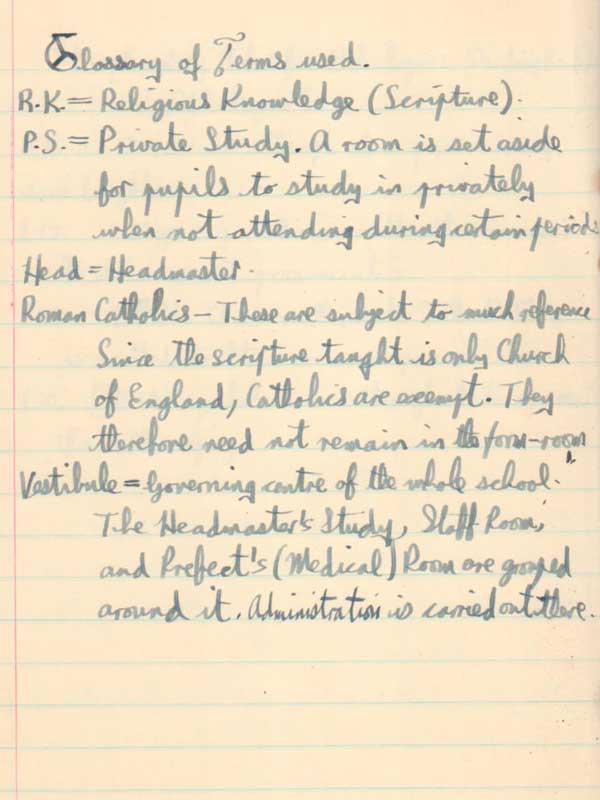 Glossary of Terms used.
R.K. = Religious Knowledge (Scripture).
P.S. = Private Study. A room is set aside
for pupils to study in privately
when not attending during certain periods
Head = Headmaster.
Roman Catholics – These are subject to much reference
Since the scripture taught is only Church
of England, Catholics are exempt. They
therefore need not remain in the form-room
Vestibule = Governing centre of the whole school.
The Headmaster's Study, Staff Room,
and Prefect's (Medical) Room are grouped
around it. Administration is carried out there.